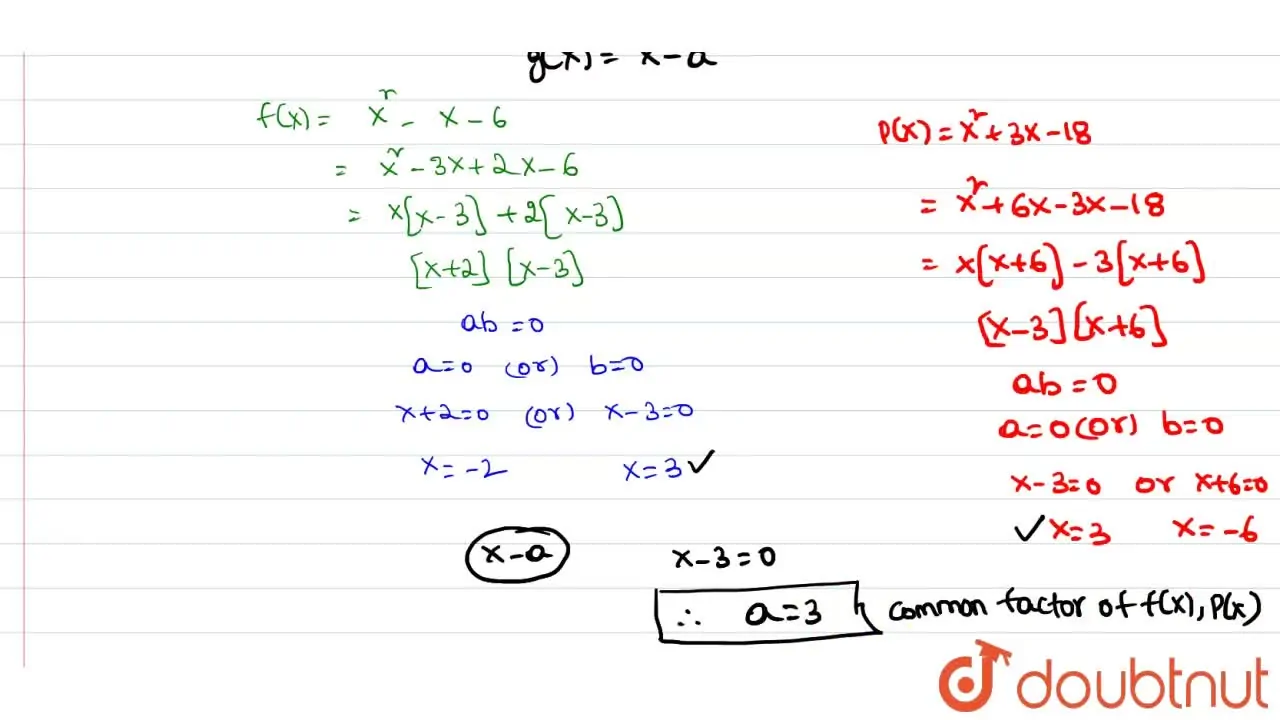 g(x) = x-a
f(x) = x² - x - 6
= x² - 3x + 2x - 6
= x[x-3] + 2[x-3]
[x+2] [x-3]
ab = 0
a=0 (or) b=0
x+2=0 (or) x-3=0
x=-2 x=3 ✓
P(x) = x² + 3x - 18
= x² + 6x - 3x - 18
= x[x+6] - 3[x+6]
[x-3][x+6]
ab = 0
a=0 (or) b=0
x-3=0 or x+6=0
✓ x=3 x=-6
x-a x-3=0
∴ a=3 common factor of f(x), P(x)
doubtnut